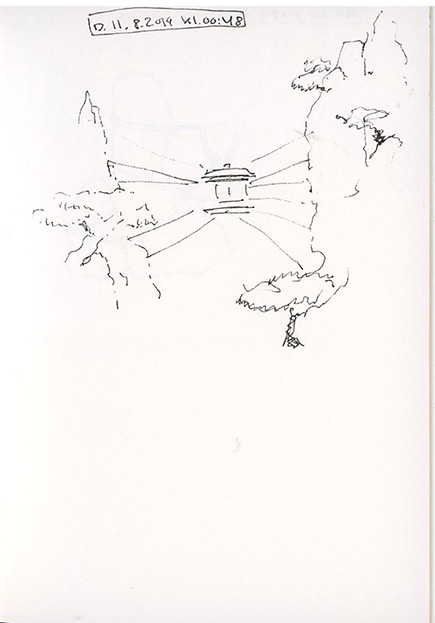 D. 11. 8. 2019 Kl. 00:48